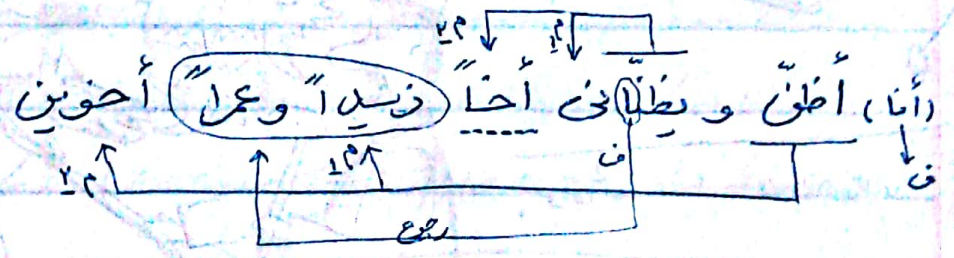 م٢ م١
(أنا) أظنّ و يظنّانى أخاً زيداً وعمراً أخوين
ف ف م١ م٢
رجوع